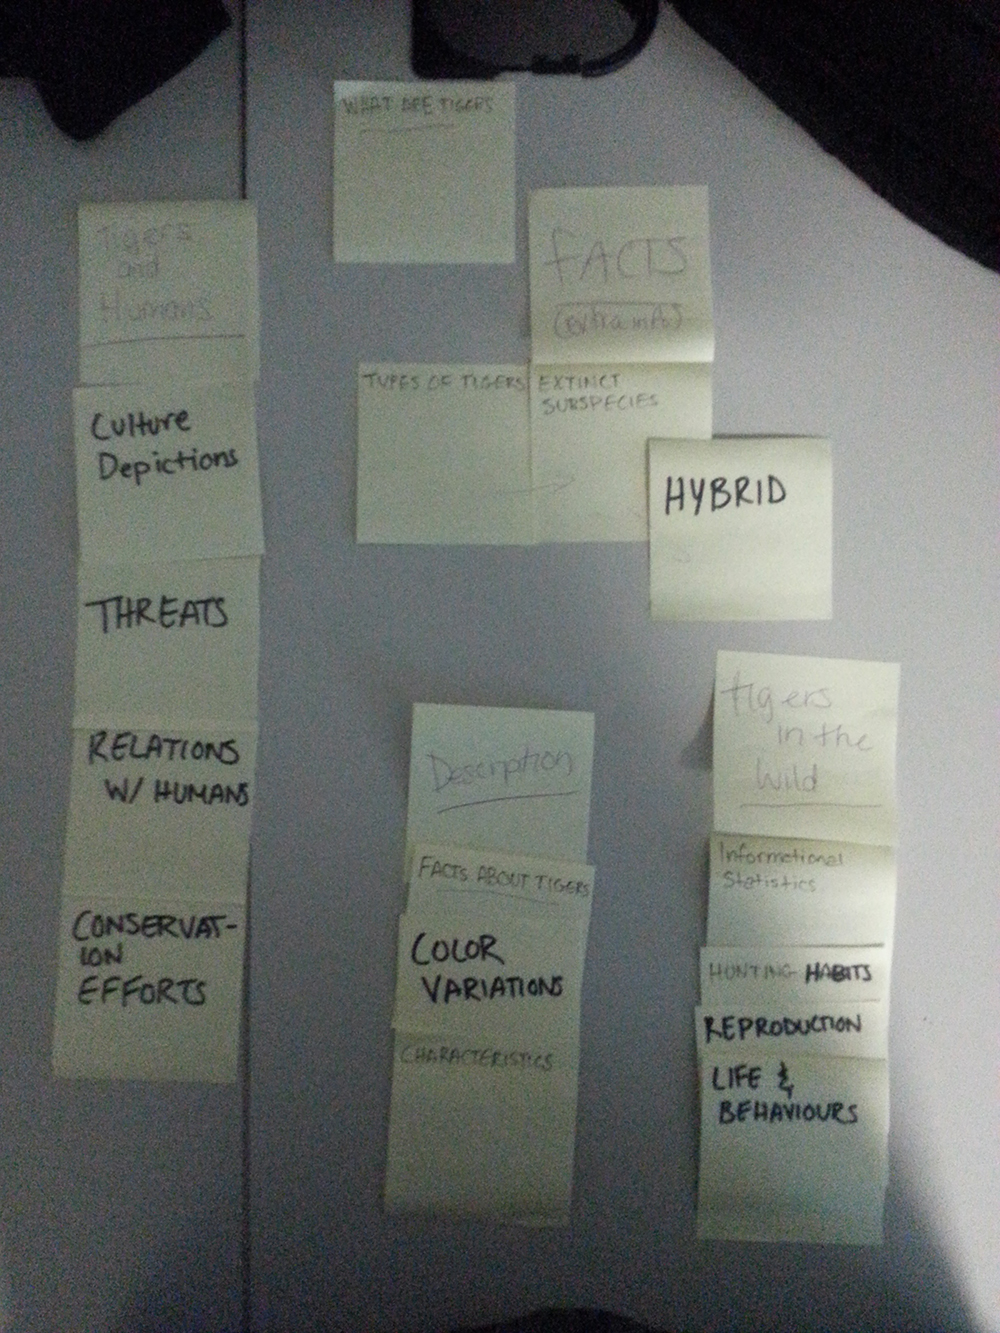 WHAT ARE TIGERS
Tigers
and
Humans
Culture
Depictions
THREATS
RELATIONS
W/ HUMANS
CONSERVAT-
ION
EFFORTS
FACTS
(extra info)
TYPES OF TIGERS
EXTINCT
SUBSPECIES
HYBRID
Description
FACTS ABOUT TIGERS
COLOR
VARIATIONS
CHARACTERISTICS
tigers
in the
Wild
Informational
Statistics
HUNTING HABITS
REPRODUCTION
LIFE &
BEHAVIOURS